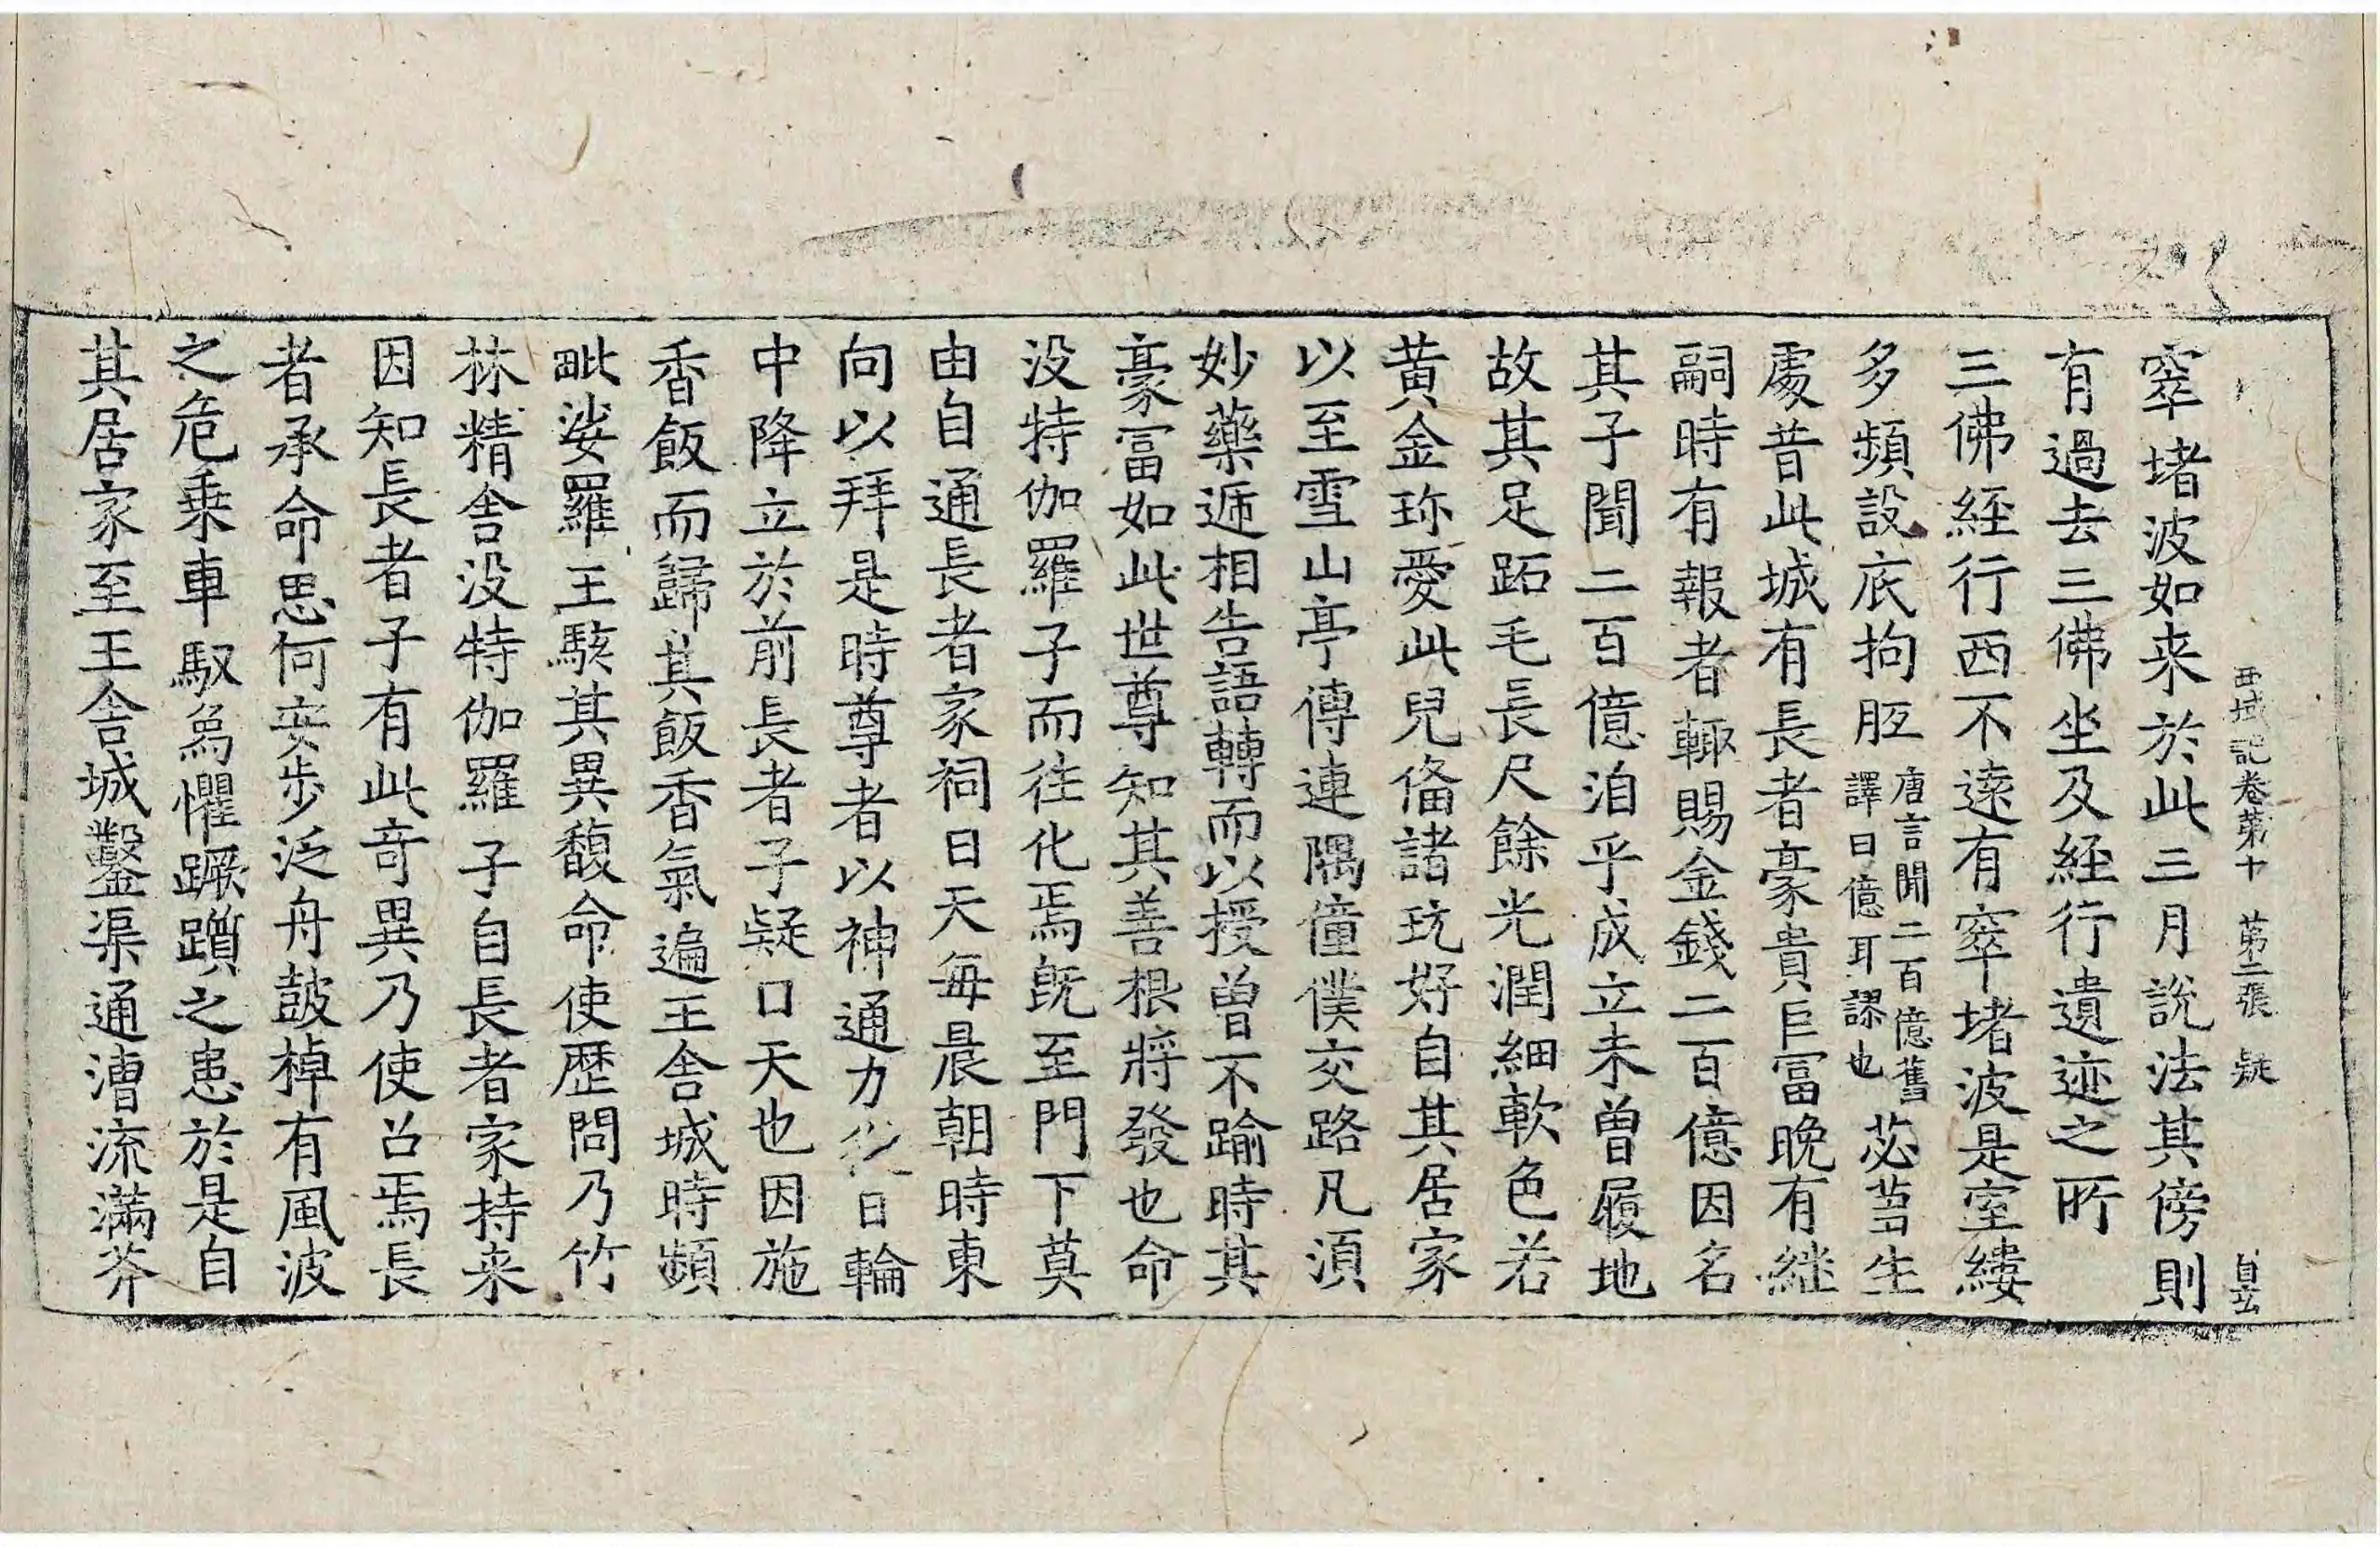 西域記卷第十 第二張 疑
窣堵波如来於此三月說法其傍則
有過去三佛坐及経行遺迹之所
三佛経行西不遠有窣堵波是室縷
多頻設底拘胝唐言聞二百億舊譯曰億耳謬也苾芻生
處昔此城有長者豪貴巨冨晚有継
嗣時有報者輙賜金錢二百億因名
其子聞二百億洎乎成立未曾履地
故其足跖毛長尺餘光潤細軟色若
黄金珎愛此兒俻諸玩好自其居家
以至雪山亭傳連隅僮僕交路凡湏
妙藥逓相告語轉而以授曾不踰時其
豪冨如此世尊知其善根將發也命
没特伽羅子而往化焉旣至門下莫
由自通長者家祠日天每晨朝時東
向以拜是時尊者以神通力 日輪
中降立於前長者子疑口天也因施
香飯而歸其飯香氣遍王舍城時頻
毗娑羅王駭其異馥命使歴問乃竹
林精舍没特伽羅子自長者家持来
因知長者子有此竒異乃使召焉長
者承命思何安步泛舟鼓棹有風波
之危乗車馭𤉡懼蹶躓之患於是自
其居家至王舍城鑿渠通漕流滿芥